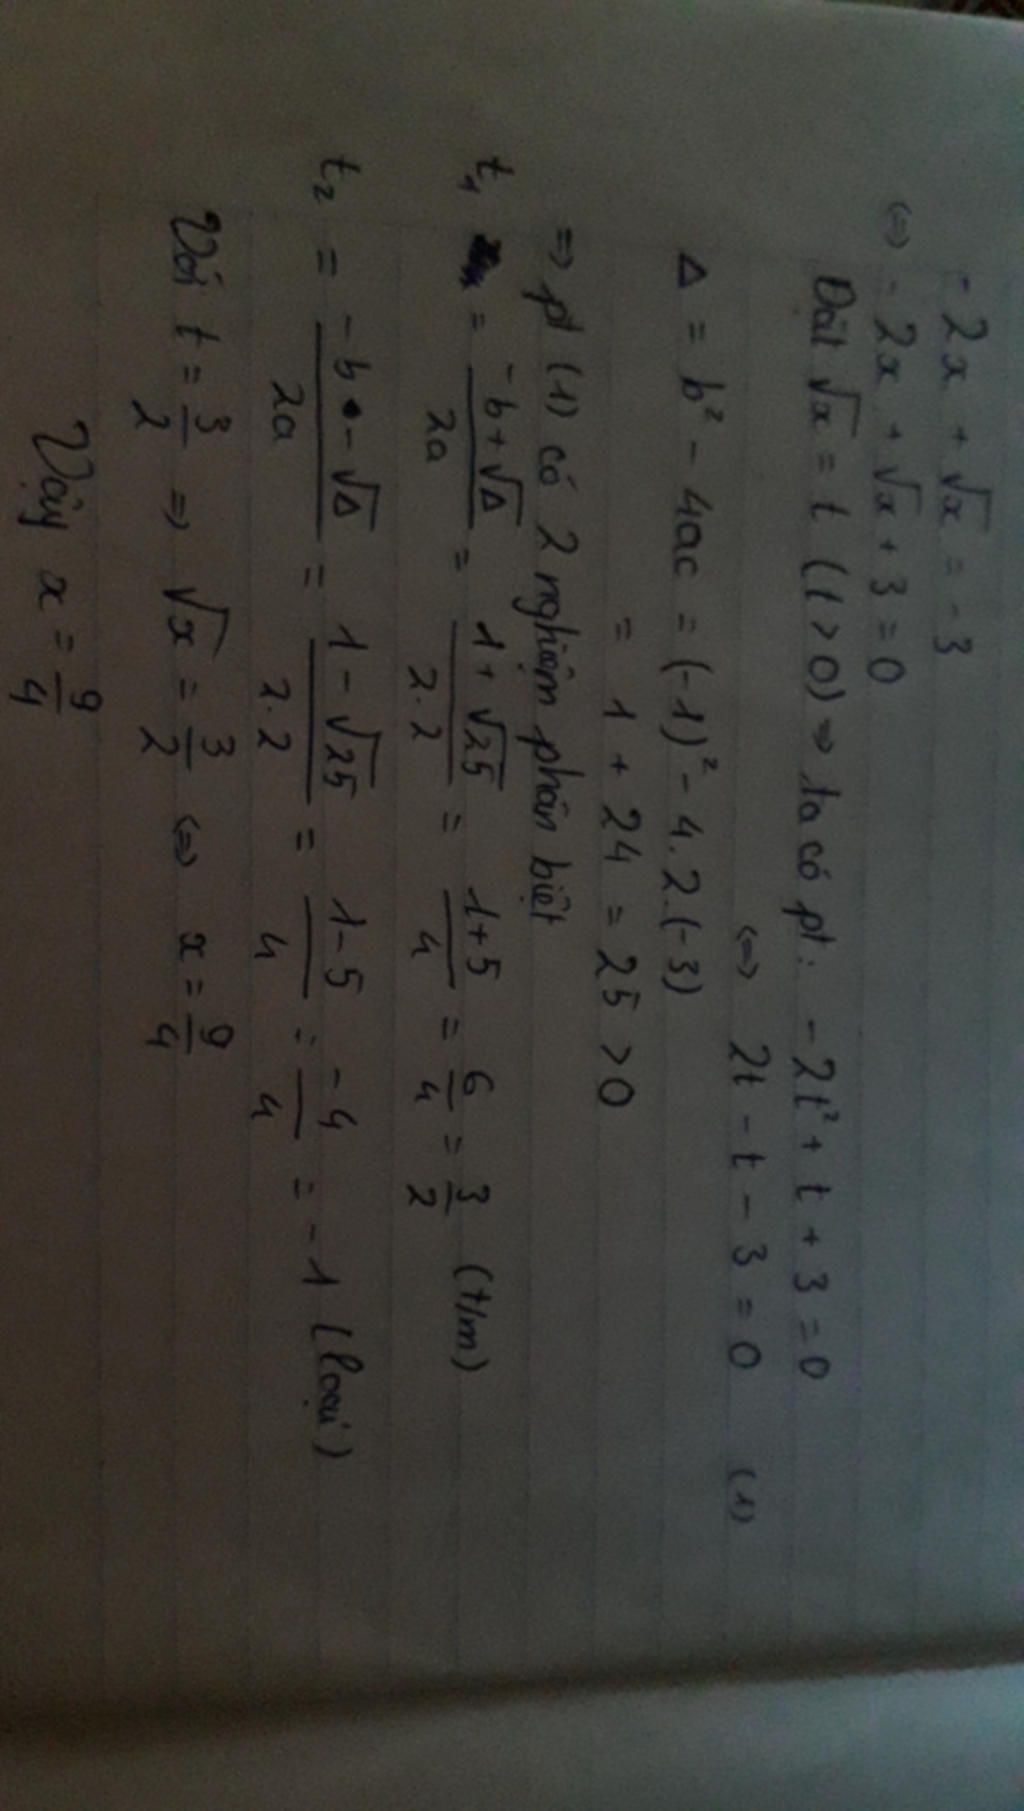 - 2x + √x = - 3
<=> - 2x + √x + 3 = 0
Đặt √x = t (t > 0) => ta có pt: - 2t² + t + 3 = 0
<=> 2t - t - 3 = 0 (1)
Δ = b² - 4ac = (-1)² - 4.2.(-3)
= 1 + 24 = 25 > 0
=> pt (1) có 2 nghiệm phân biệt
t₁ = (-b + √Δ)/2a = (1 + √25)/2.2 = (1+5)/4 = 6/4 = 3/2 (t/m)
t₂ = (-b - √Δ)/2a = (1 - √25)/2.2 = (1-5)/4 = -4/4 = -1 (loại)
Với t = 3/2 => √x = 3/2 <=> x = 9/4
Vậy x = 9/4